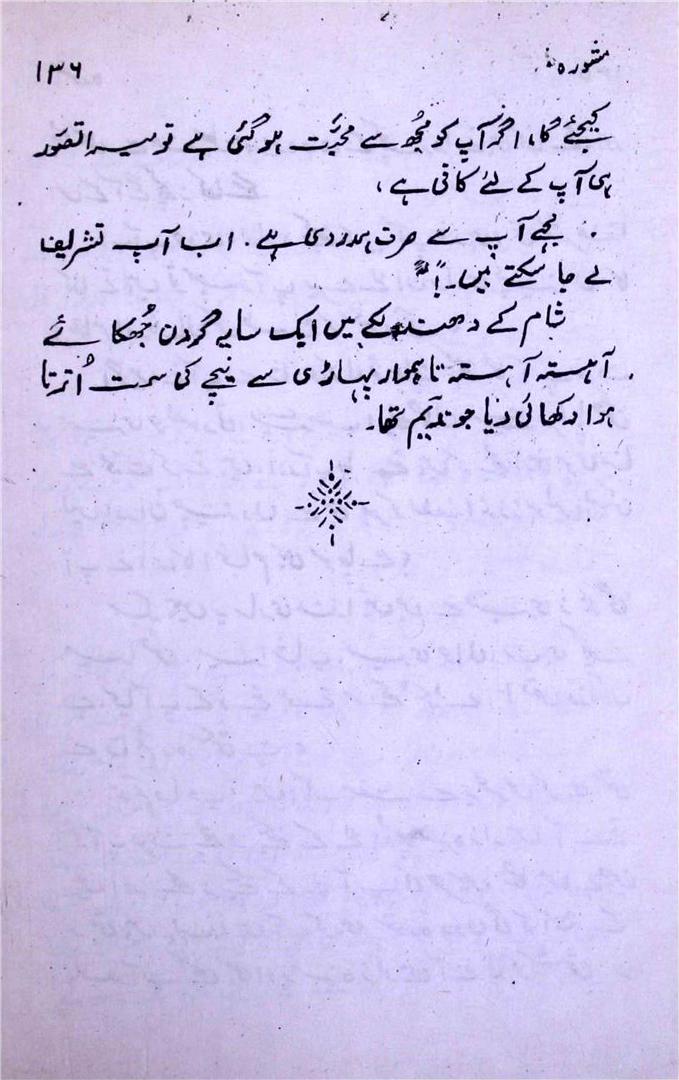 مشورہ ۱۳۶
کیجئے گا، اگر آپ کو مجُھ سے محبّت ہو گئی ہے تو میرا تصّور
ہی آپ کے لئے کافی ہے،
مجھے آپ سے صرف ہمدردی ہے. اب آپ تشریف
لے جا سکتے ہیں۔!"
شام کے دھندلکے میں ایک سایہ گردن جُھکائے
آہستہ آہستہ ناہموار پہاڑی سے نیچے کی سمت اُترتا
ہوا دکھائی دیا جو ندیم تھا۔